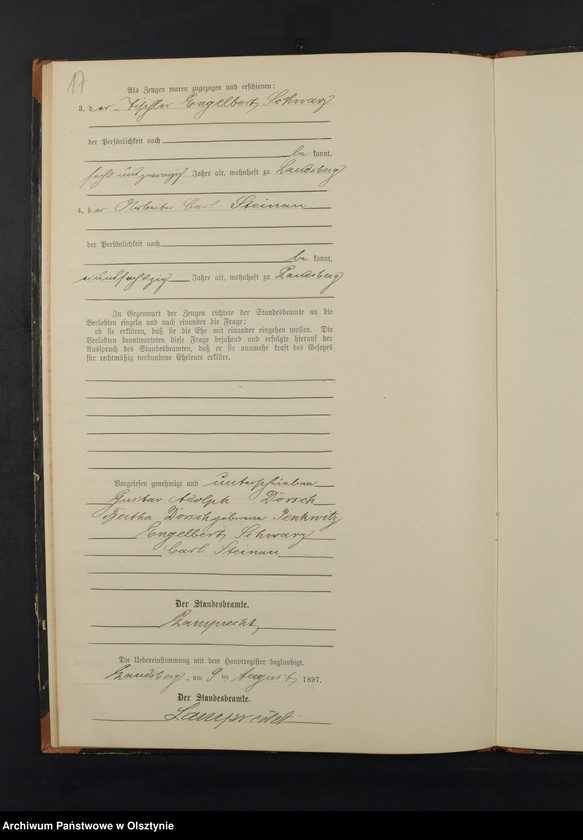 17
Als Zeugen waren zugezogen und erschienen:
3. der Tischler Engelbert Schwarz
der Persönlichkeit nach
be kannt,
sechsundzwanzig Jahre alt, wohnhaft zu Landsberg
4. der Carl Steinau
der Persönlichkeit nach
be kannt,
einundsechszig Jahre alt, wohnhaft zu Landsberg
In Gegenwart der Zeugen richtete der Standesbeamte an die
Verlobten einzeln und nach einander die Frage:
ob sie erklären, daß sie die Ehe mit einander eingehen wollen. Die
Verlobten beantworteten diese Frage bejahend und erfolgte hierauf der
Ausspruch des Standesbeamten, daß er sie nunmehr kraft des Gesetzes
für rechtmäßig verbundene Eheleute erkläre.
Vorgelesen genehmigt und unterschrieben
Gustav Adolph Dorsch
Bertha Dorsch geborene Penkwitz
Engelbert Schwarz
Carl Steinau
Der Standesbeamte.
Lamprecht
Die Uebereinstimmung mit dem Hauptregister beglaubigt.
Landsberg, am 9ten August 1897.
Der Standesbeamte.
Lamprecht.
Archiwum Państwowe w Olsztynie